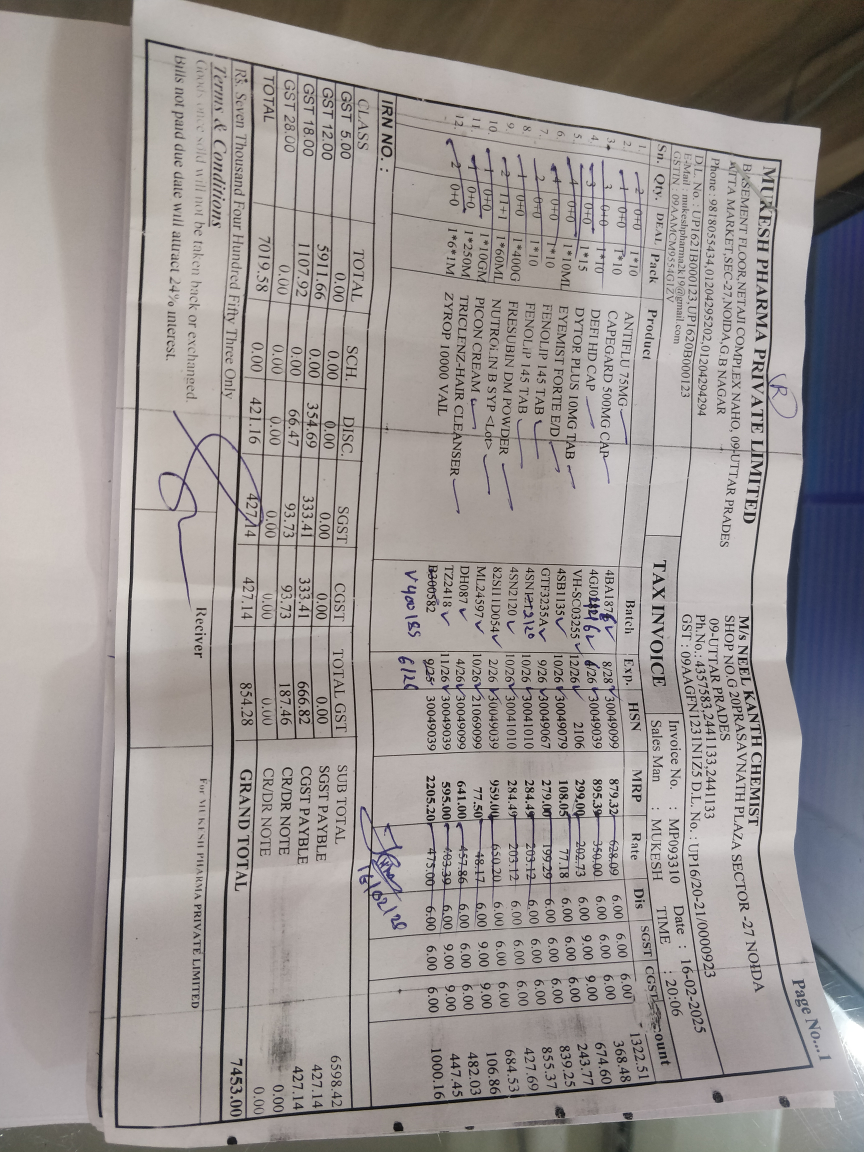 Page No...1
MUKESH PHARMA PRIVATE LIMITED
BASEMENT FLOOR,NETAJI COMPLEX NAHO, 09-UTTAR PRADES
ATTA MARKET,SEC-27,NOIDA,G.B NAGAR
Phone : 9818055434,01204295202,01204294294
D.L. No. : UP1621B000123,UP1620B000123
E-Mail : mukeshpharma2k19@gmail.com
GSTIN : 09AAMCM9554G1ZV
M/s NEEL KANTH CHEMIST
SHOP NO.G 20PRASAVNATH PLAZA SECTOR -27 NOIDA
09-UTTAR PRADES
Ph.No.: 4357583,2441133,2441133
GST : 09AAGFN1231N1Z5 D.L. No. : UP16/20-21/0000923
TAX INVOICE
Invoice No. : MP093310 Date : 16-02-2025
Sales Man : MUKESH TIME : 20:06
Sn. Qty. DEAL Pack Product Batch Exp. HSN MRP Rate Dis SGST CGST ount
1. 2 0+0 1*10 ANTIFLU 75MG 4BA1876 8/28 30049099 879.32 628.09 6.00 6.00 6.00 1322.51
2. 1 0+0 1*10 CAPEGARD 500MG CAP 6/26 30049039 895.39 350.00 6.00 6.00 6.00 368.48
3. 3 0+0 1*10 DEFI HD CAP VH-SC03255 12/26 2106 299.00 202.73 6.00 9.00 9.00 674.60
4. 3 0+0 1*15 DYTOR PLUS 10MG TAB 4SB1135 10/26 30049079 108.05 77.18 6.00 6.00 6.00 243.77
5. 4 0+0 1*10ML EYEMIST FORTE E/D GTF3235A 9/26 30049067 279.00 199.29 6.00 6.00 6.00 839.25
6. 4 0+0 1*10 FENOLIP 145 TAB 10/26 30041010 284.49 203.12 6.00 6.00 6.00 855.37
7. 2 0+0 1*10 FENOLIP 145 TAB 4SN2120 10/26 30041010 284.49 203.12 6.00 6.00 6.00 427.69
8. 1 0+0 1*400G FRESUBIN DM POWDER 82SI11D054 2/26 30049039 959.00 650.20 6.00 6.00 6.00 684.53
9. 2 11+1 1*60ML NUTROLIN B SYP <Lot> ML24597 10/26 21069099 77.50 48.17 6.00 9.00 9.00 106.86
10. 1 0+0 1*10GM PICON CREAM DH087 4/26 30049099 641.00 457.86 6.00 6.00 6.00 482.03
11. 1 0+0 1*250M TRICLENZ-HAIR CLEANSER TZ2418 11/26 30049039 595.00 403.39 6.00 9.00 9.00 447.45
12. 2 0+0 1*6*1M ZYROP 10000 VAIL B300582 9/25 30049039 2205.20 475.00 6.00 6.00 6.00 1000.16
V400185 6/26
IRN NO. :
CLASS TOTAL SCH. DISC. SGST CGST TOTAL GST
GST 5.00 0.00 0.00 0.00 0.00 0.00 0.00
GST 12.00 5911.66 0.00 354.69 333.41 333.41 666.82
GST 18.00 1107.92 0.00 66.47 93.73 93.73 187.46
GST 28.00 0.00 0.00 0.00 0.00 0.00 0.00
TOTAL 7019.58 0.00 421.16 427.14 427.14 854.28
SUB TOTAL 6598.42
SGST PAYBLE 427.14
CGST PAYBLE 427.14
CR/DR NOTE 0.00
CR/DR NOTE 0.00
Rs. Seven Thousand Four Hundred Fifty Three Only
GRAND TOTAL 7453.00
Terms & Conditions
Goods once sold will not be taken back or exchanged.
Bills not paid due date will attract 24% interest.
Reciver
For MUKESH PHARMA PRIVATE LIMITED